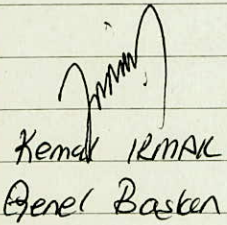 Kemal IRMAK
Genel Başkan